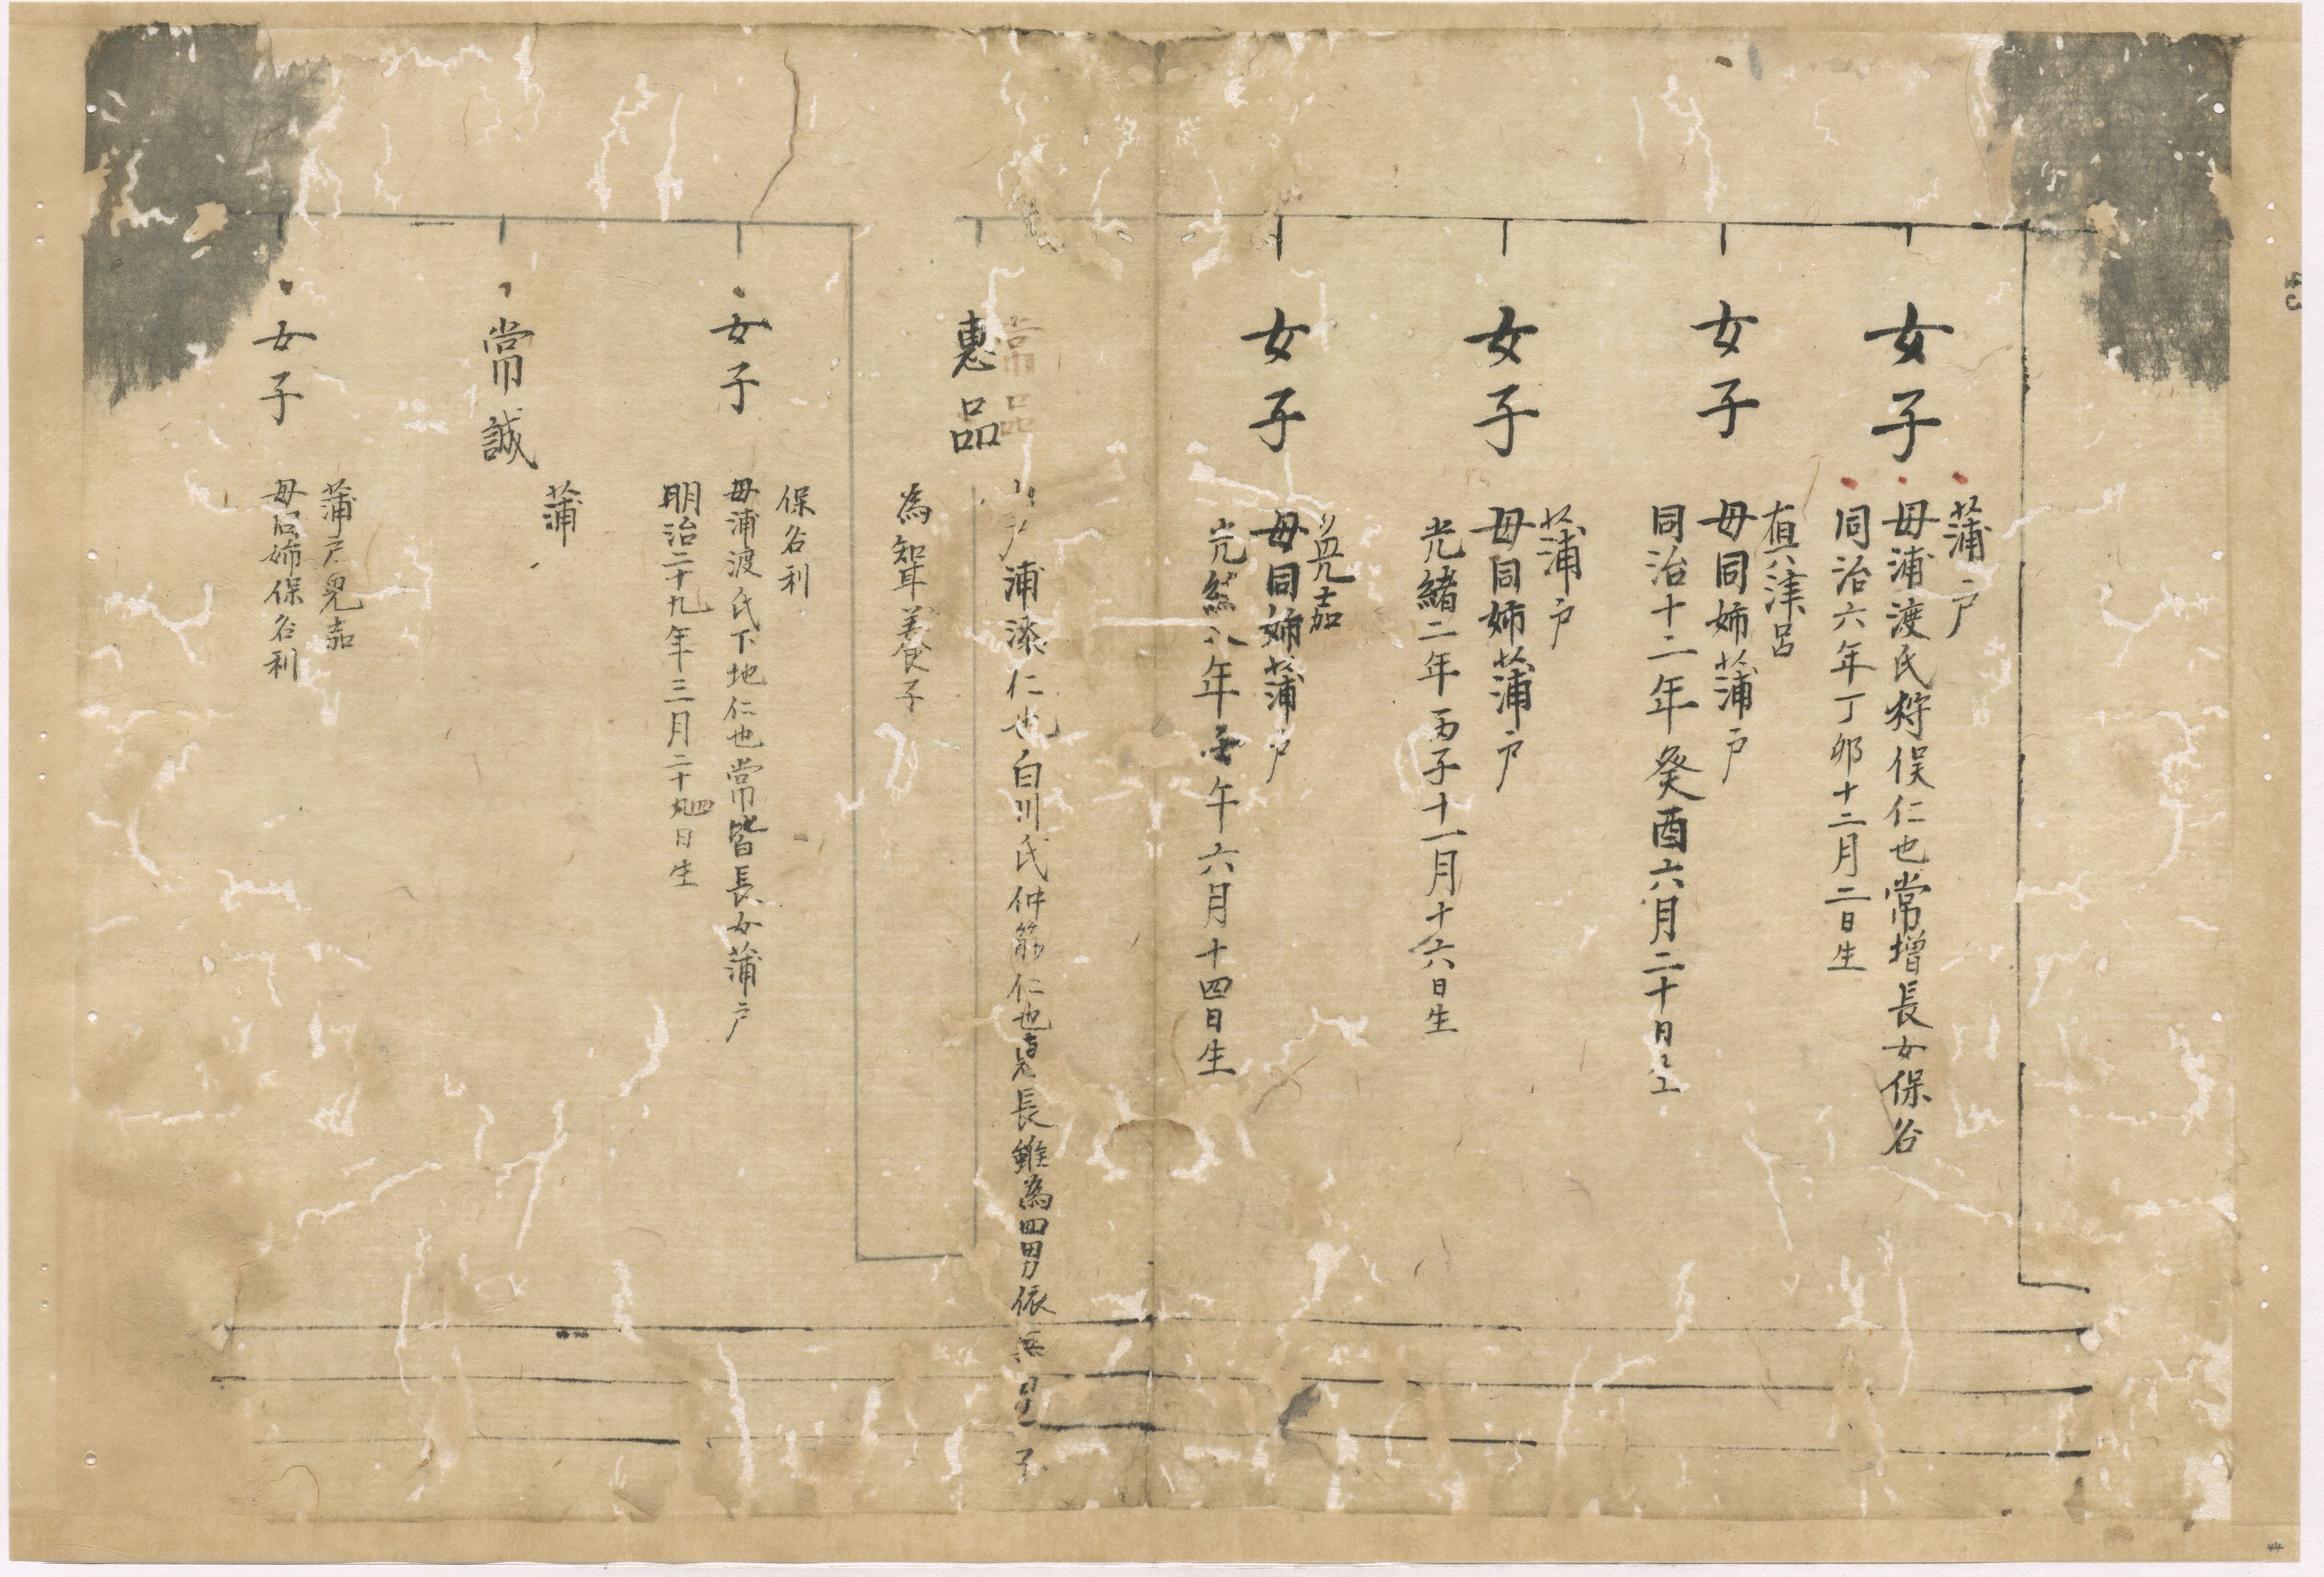 女子
蒲戸
母浦渡氏狩俣仁也常増長女保谷
同治六年丁卯十二月二日生
女子
真津呂
母同姉蒲戸
同治十二年癸酉六月二十日生
女子
蒲戸
母同姉蒲戸
光緒二年丙子十一月十六日生
女子
免嘉
母同姉蒲戸
光緒八年壬午六月十四日生
常品
惠品
戸浦添仁也白川氏仲筋仁也長雖為四男依無子
為聟養子
女子
保谷利
母浦渡氏下地仁也常皆長女蒲戸
明治二十九年三月二十四日生
常誠
蒲
女子
蒲戸免嘉
母同姉保谷利
44